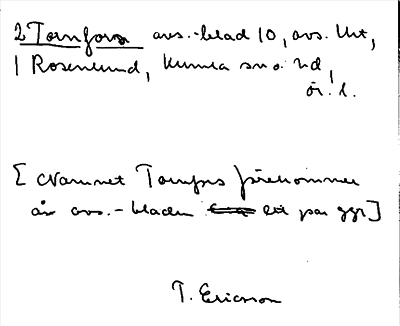 2 Tornfors avs.-blad 10, avs. Utt,
1 Rosenlund, Kumla sn o. hd,
ör. l.
[Namnet Tornfors förekommer
å avs.-bladen ett par ggr]
T. Ericsson